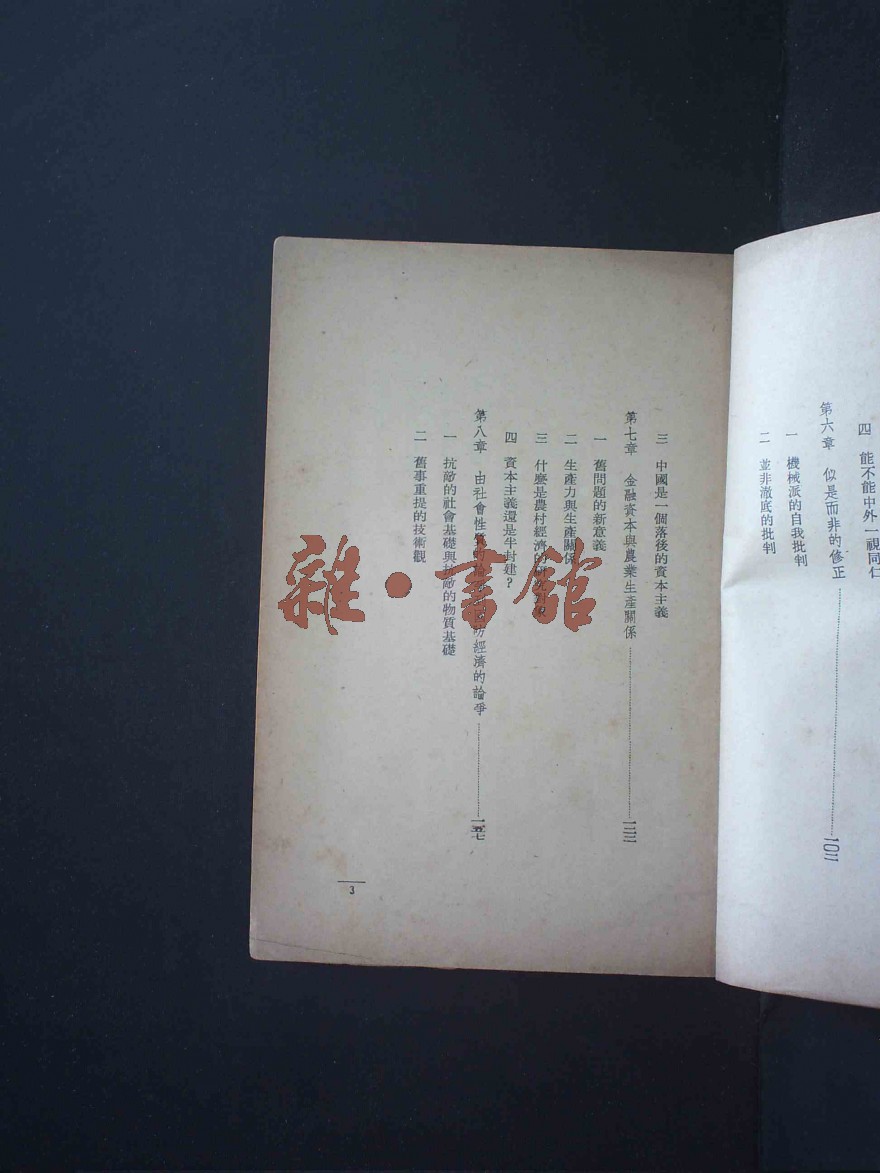 四 能不能中外一視同仁
第六章 似是而非的修正 一〇二
一 機械派的自我批判
二 並非澈底的批判
三 中國是一個落後的資本主義
第七章 金融資本與農業生產關係 一二二
一 舊問題的新意義
二 生產力與生產關係
三 什麼是農村經濟的研究
四 資本主義還是半封建?
第八章 由社會性質的 防經濟的論爭 一五七
一 抗敵的社會基礎與抗敵的物質基礎
二 舊事重提的技術觀
3
雜·書館